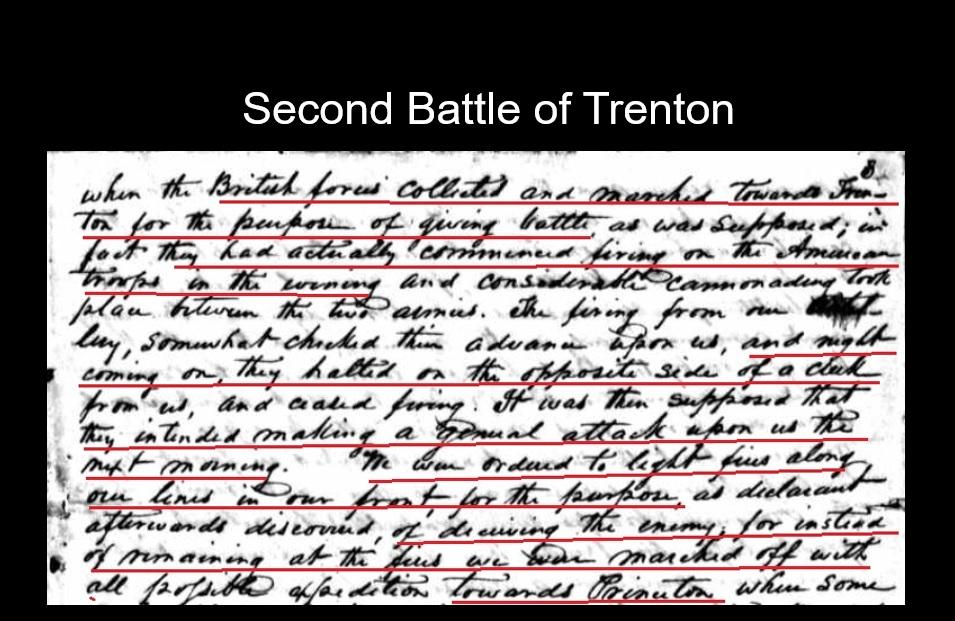 Second Battle of Trenton
8
when the British forces collected and marched towards Tren-
ton for the purpose of giving battle, as was supposed; in
fact they had actually commenced firing on the American
troops in the evening and considerable cannonading took
place between the two armies. The firing from our
lery, somewhat checked their advance upon us, and night
coming on, they halted on the opposite side of a creek
from us, and ceased firing. It was then supposed that
they intended making a general attack upon us the
next morning. We were ordered to light fires along
our lines in our front, for the purpose, as declarant
afterwards discovered, of deceiving the enemy; for instead
of remaining at the fires we were marched off with
all possible expedition towards Princeton when some